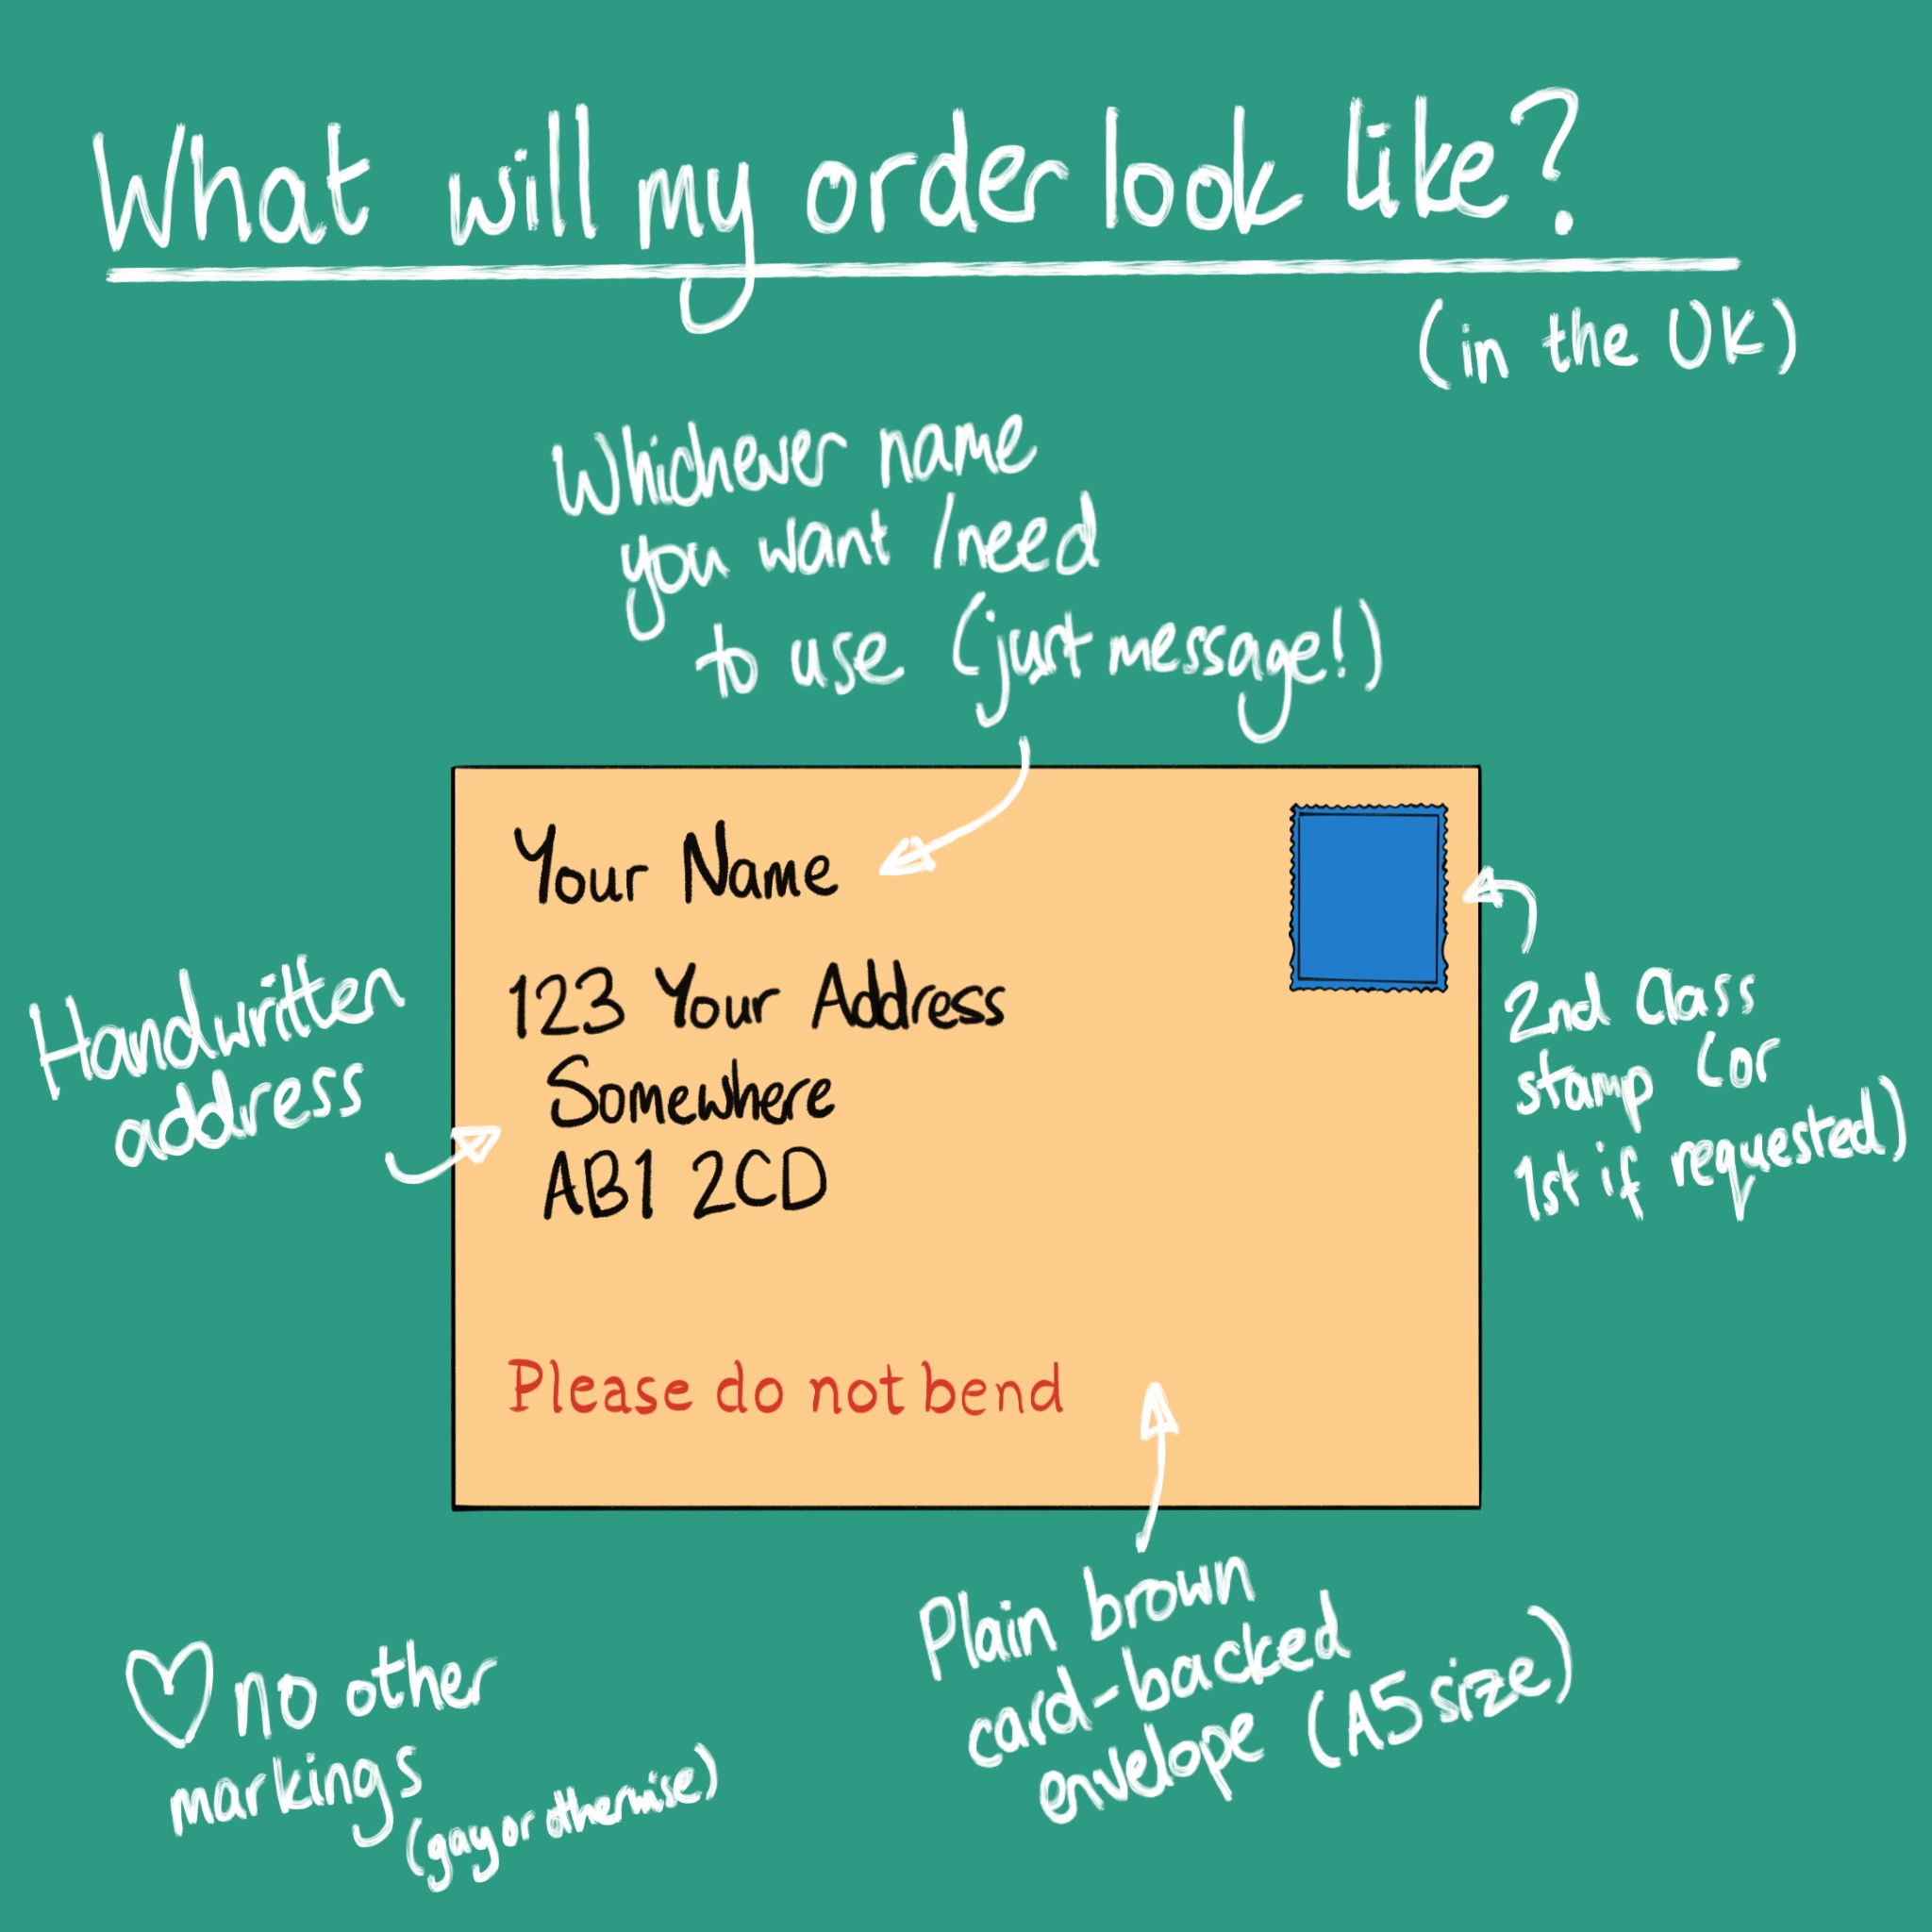 What will my order look like?
(in the UK)
Whichever name
you want / need
to use (just message!)
Your Name
123 Your Address
Somewhere
AB1 2CD
Please do not bend
Handwritten
address
2nd Class
stamp (or
1st if requested)
Plain brown
card-backed
envelope (A5 size)
♡ no other
markings
(gay or otherwise)